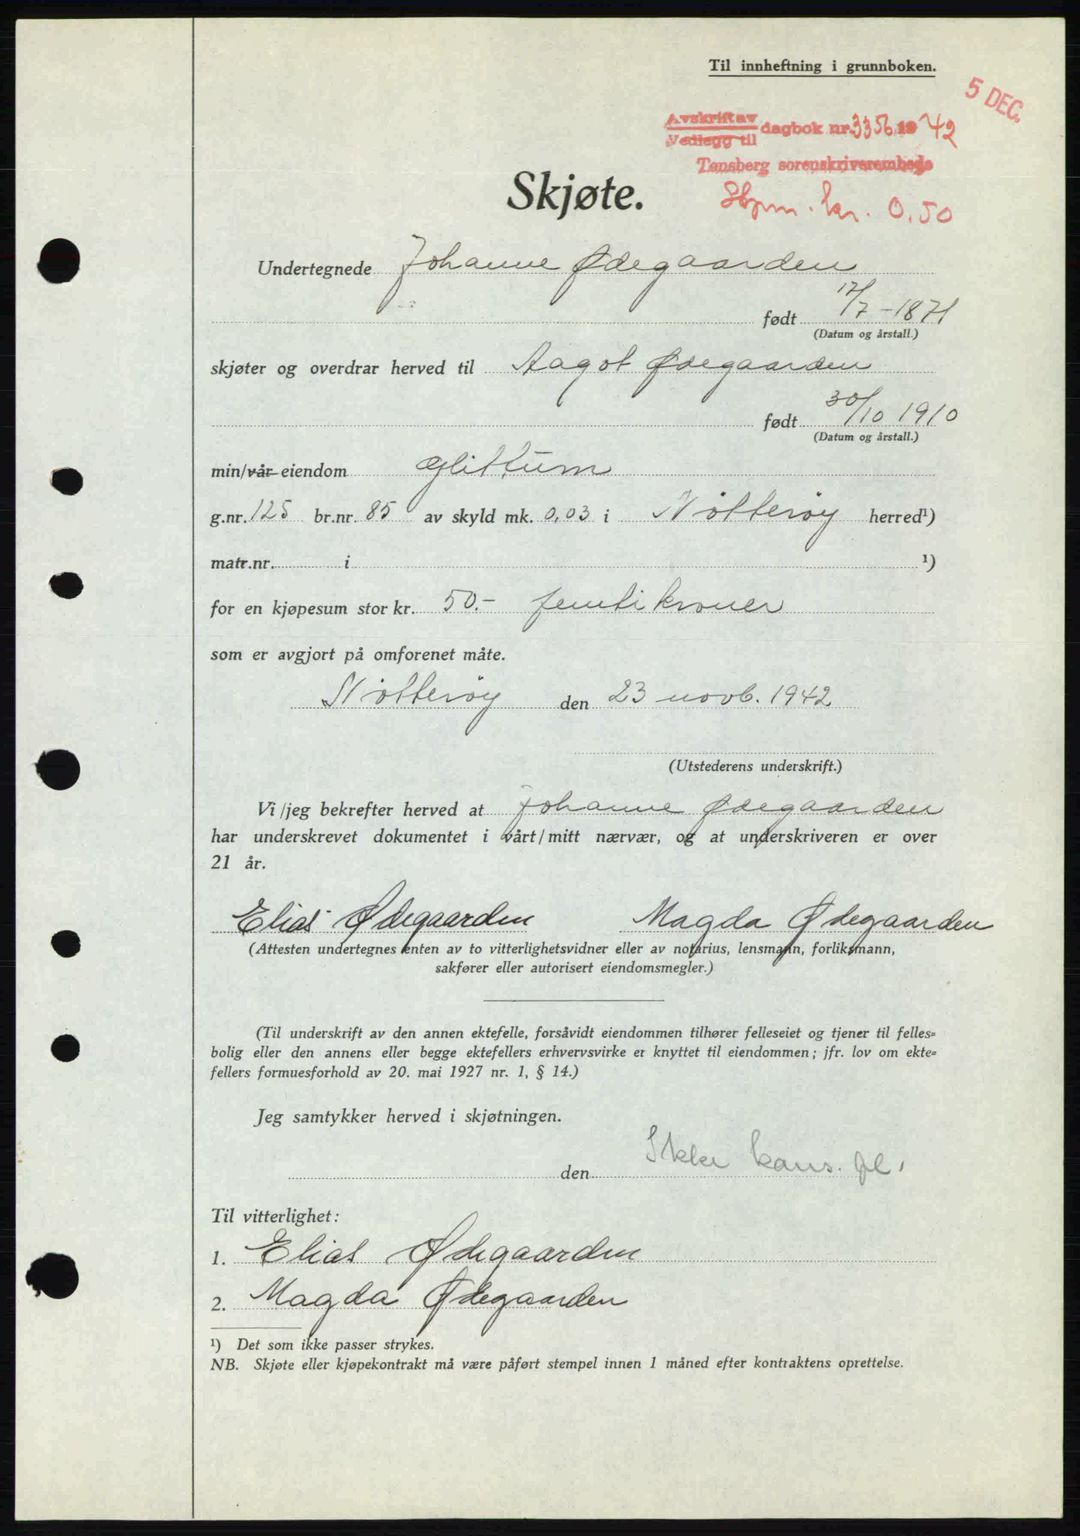 Til innheftning i grunnboken.
5 DEC.
Avskrift av
Vedlegg til dagbok nr. 3356 1942
Tønsberg sorenskriverembede
Skjøte.
Stpm. kr. 0.50
Undertegnede Johanne Ødegaarden
født 17/7-1871
(Datum og årstall.)
skjøter og overdrar herved til Aagot Ødegaarden
født 30/10 1910
(Datum og årstall.)
min/vår eiendom Glittum
g.nr. 125 br.nr. 85 av skyld mk. 0,03 i Nøtterøy herred¹)
matr.nr. i ¹)
for en kjøpesum stor kr. 50.- femti kroner
som er avgjort på omforenet måte.
Nøtterøy den 23 novb. 1942
(Utstederens underskrift.)
Vi/jeg bekrefter herved at Johanne Ødegaarden
har underskrevet dokumentet i vårt/mitt nærvær, og at underskriveren er over
21 år.
Elias Ødegaarden Magda Ødegaarden
(Attesten undertegnes enten av to vitterlighetsvidner eller av notarius, lensmann, forliksmann,
sakfører eller autorisert eiendomsmegler.)
(Til underskrift av den annen ektefelle, forsåvidt eiendommen tilhører felleseiet og tjener til felles=
bolig eller den annens eller begge ektefellers erhvervsvirke er knyttet til eiendommen; jfr. lov om ekte=
fellers formuesforhold av 20. mai 1927 nr. 1, § 14.)
Jeg samtykker herved i skjøtningen.
Ikke kons. pl.
den
Til vitterlighet:
1. Elias Ødegaarden
2. Magda Ødegaarden
¹) Det som ikke passer strykes.
NB. Skjøte eller kjøpekontrakt må være påført stempel innen 1 måned efter kontraktens oprettelse.